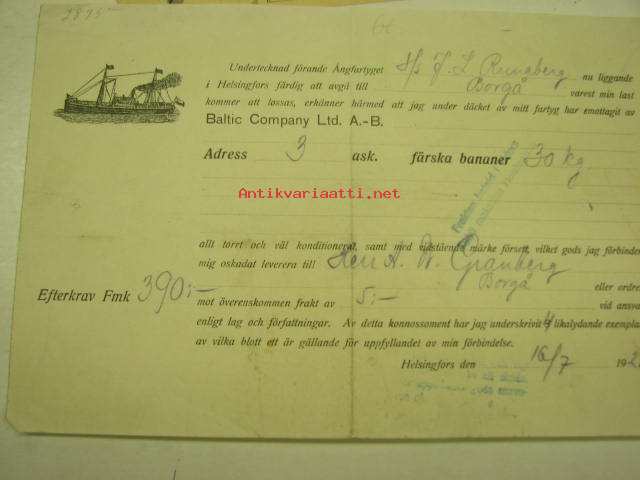 2875
Undertecknad förande Ångfartyget S/s J. L. Runeberg nu liggande
i Helsingfors färdig att avgå till Borgå varest min last
kommer att lossas, erkänner härmed att jag under däcket av mitt fartyg har emottagit av
Baltic Company Ltd. A.-B.
Adress 3 ask. färska bananer 30 kg
Antikvariaatti.net
allt torrt och väl konditionerat, samt med vidstående märke försett, vilket gods jag förbinder
mig oskadat leverera till Herr A. W. Granberg
Borgå eller ordre
Efterkrav Fmk 390:-
mot överenskommen frakt av 5:- vid ansva
enligt lag och författningar. Av detta konnossoment har jag underskrivit 4 likalydande exempla
av vilka blott ett är gällande för uppfyllandet av min förbindelse.
Helsingfors den 16/7 192